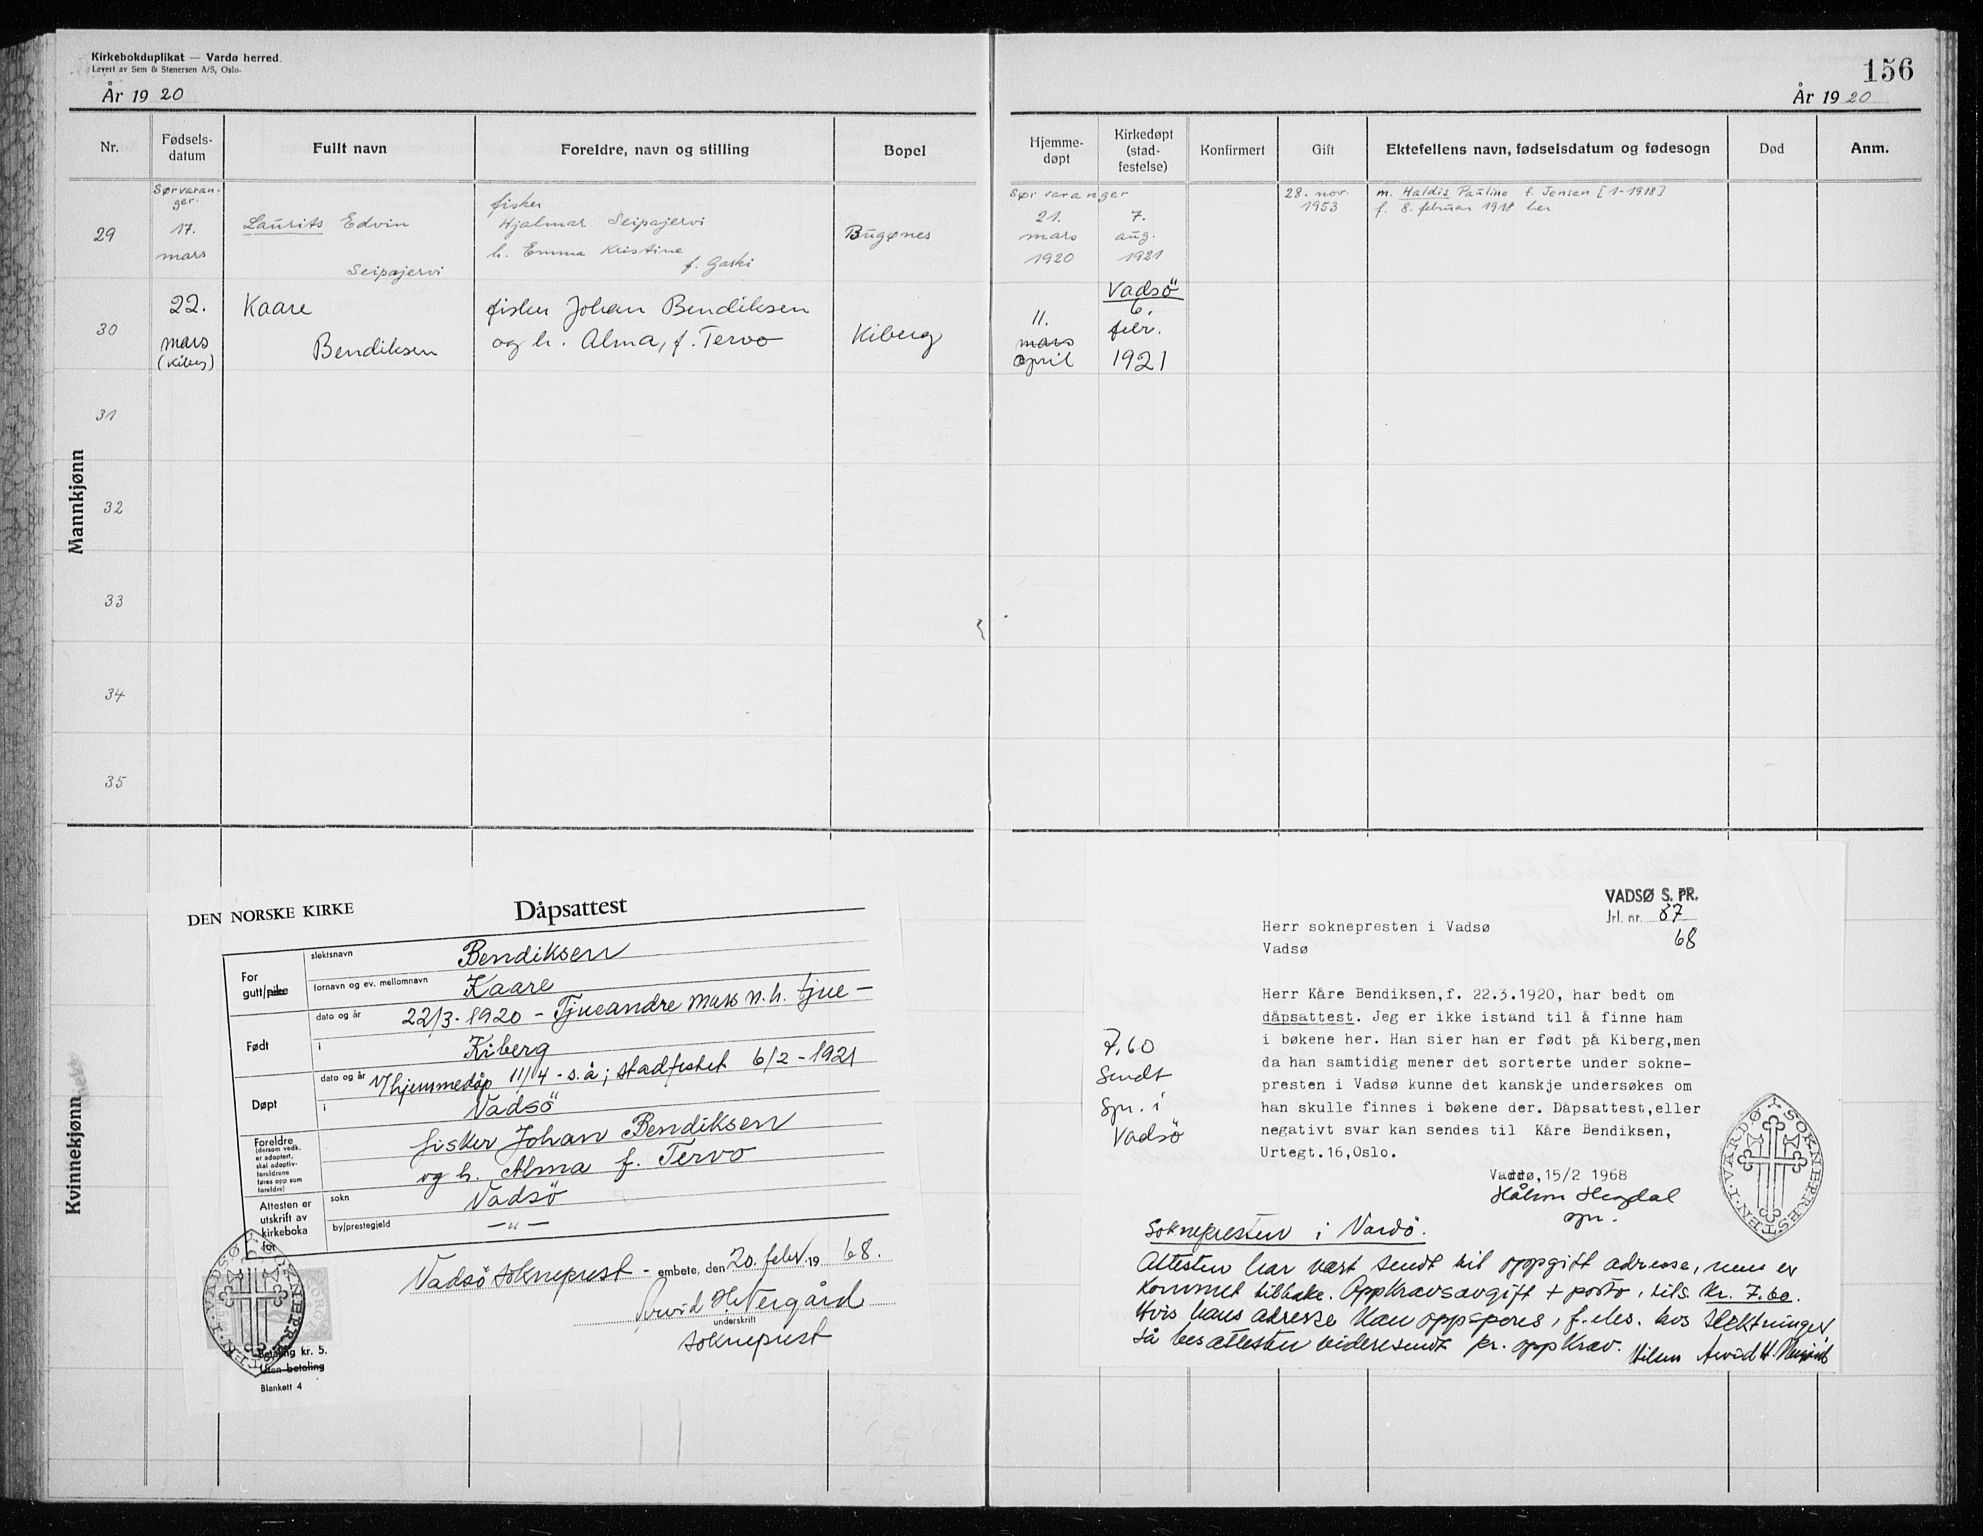 Kirkebokduplikat — Vardø herred.
Levert av Sem & Stenersen A/S, Oslo.
År 19 20
Nr. Fødsels-datum Fullt navn Foreldre, navn og stilling Bopel
Sørvaran-
ger.
29 17. mars
Laurits Edvin
Seipajervi
fisker
Hjalmar Seipajervi
h. Emma Kristine
f. Gaski
Bugønes
30 22.
mars
(Kiberg)
Kaare
Bendiksen
fisker Johan Bendiksen
og h. Alma, f. Tervo
Kiberg
31
32
33
34
35
Mannkjønn
Kvinnekjønn
156
År 19 20
Hjemme-døpt Kirkedøpt (stad-festelse) Konfirmert Gift Ektefellens navn, fødselsdatum og fødesogn Død Anm.
Sørvaranger
21.
mars
1920
7.
aug.
1921
28. nov.
1953
m. Haldis Pauline f. Jensen [1-1918]
f. 8. februar 1918 her
11.
mars
april
Vadsö
6.
febr.
1921
DEN NORSKE KIRKE
Dåpsattest
For
gutt/pike
slektsnavn Bendiksen
fornavn og ev. mellomnavn Kaare
Født
dato og år 22/3-1920 - Tjueandre mars n.h. tjue -
i Kiberg
Døpt
dato og år v/hjemmedåp 11/4 - s.å; stadfestet 6/2 - 1921
i Vadsö
Foreldre
(dersom vedk.
er adoptert,
skal adoptiv-
foreldrene
føres opp som
foreldre)
fisker Johan Bendiksen
og h. Alma f. Tervo
Attesten er
utskrift av
kirkeboka
for
sokn Vadsö
by/prestegjeld —"—
Vadsö sokneprest - embete, den 20. febr. 19 68.
Arvid H. Nergård
underskrift
sokneprest
SOKNEPRESTEN·I·VADSØ
Betaling kr. 5.
Uten betaling
Blankett 4
VADSØ S. PR.
Jrl. nr. 87
68
Herr soknepresten i Vadsø
Vadsø
Herr Kåre Bendiksen,f. 22.3.1920, har bedt om
dåpsattest. Jeg er ikke istand til å finne ham
i bøkene her. Han sier han er født på Kiberg,men
da han samtidig mener det sorterte under sokne-
presten i Vadsø kunne det kanskje undersøkes om
han skulle finnes i bøkene der. Dåpsattest,eller
negativt svar kan sendes til Kåre Bendiksen,
Urtegt.16,Oslo.
Vardø, 15/2 1968
spr.
SOKNEPRESTEN·I·VARDØ
7.60
Sendt
Spr. i
Vadsö
Soknepresten i Vardö.
Attesten har vært sendt til oppgitt adresse, men er
kommet tilbake. Oppkravsavgift + porto, tils. kr. 7.60.
Hvis hans adresse kan oppspores, f.eks. hos slektninger,
så bes attesten videresendt pr. oppkrav. Hilsen Arvid H. Nergård